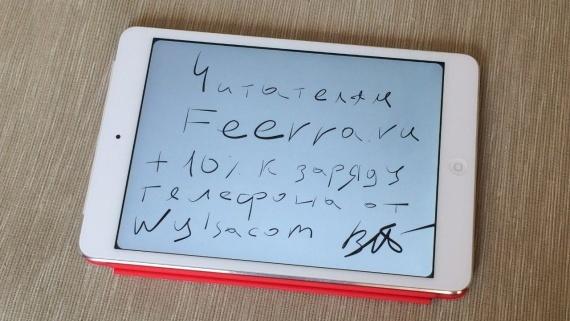 Читателям
Feerra.ru
+ 10% к заряду
телефона от
Wylsacom